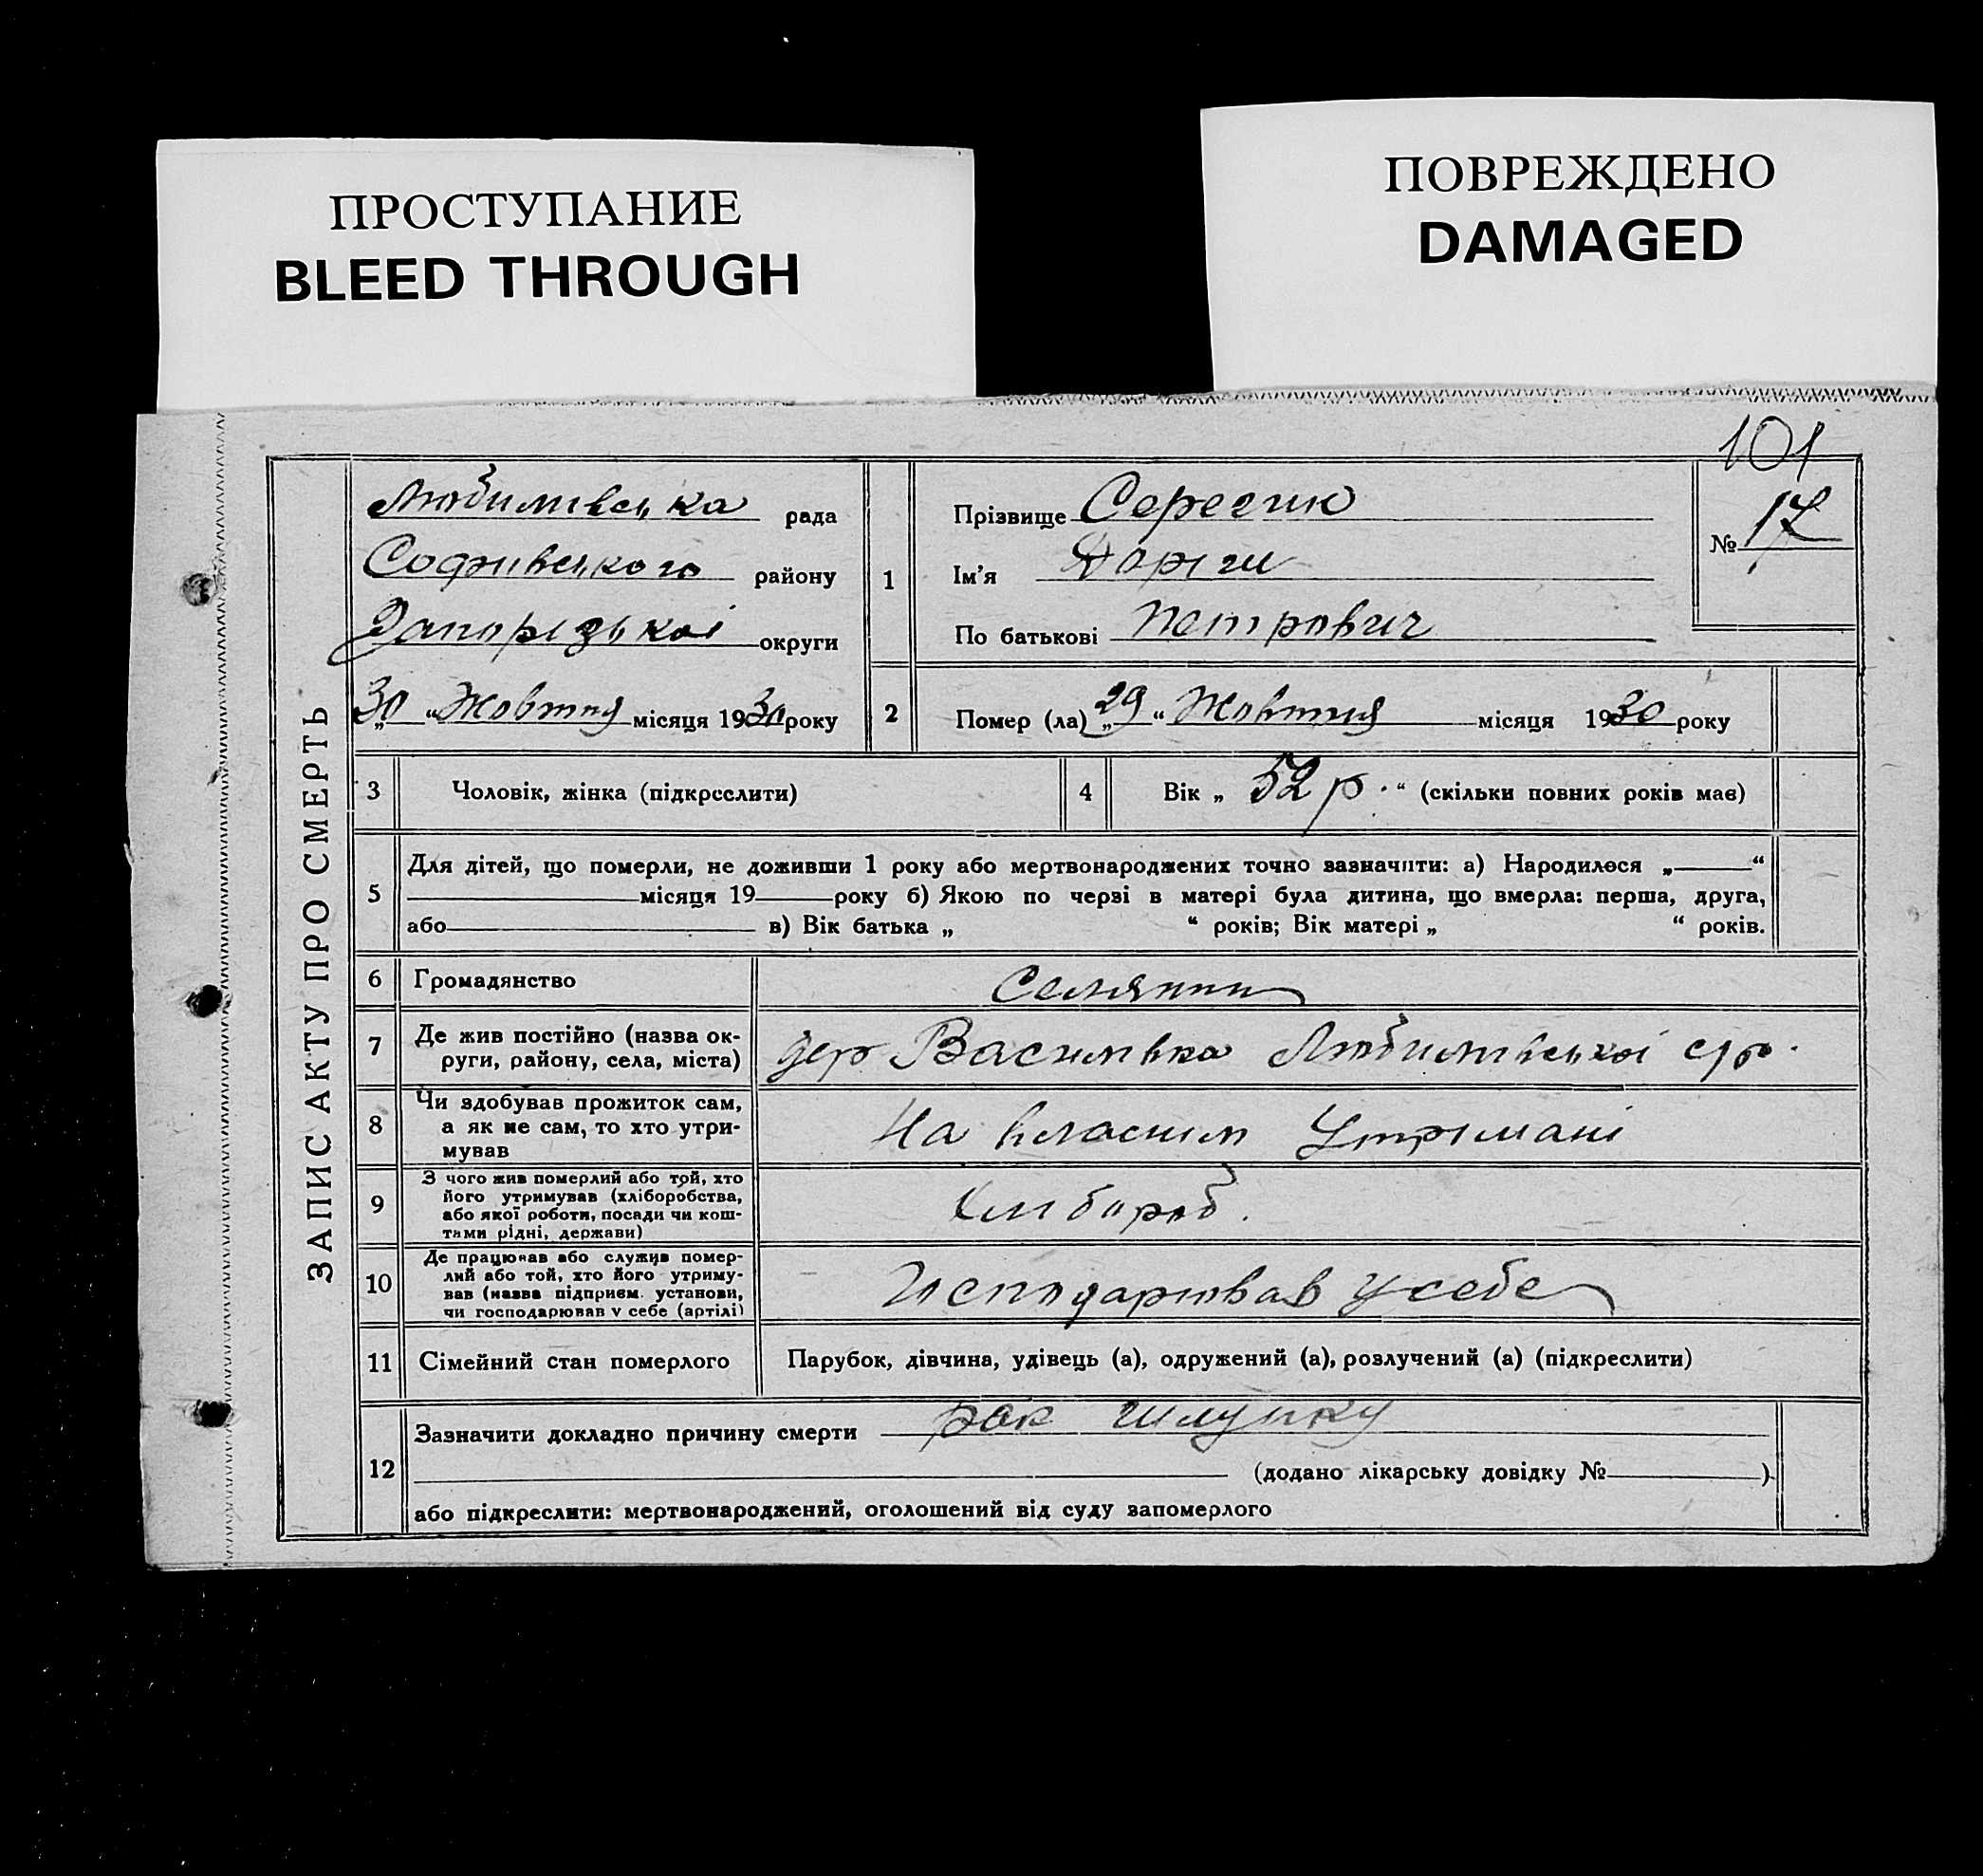 ПРОСТУПАНИЕ
BLEED THROUGH
ПОВРЕЖДЕНО
DAMAGED
101
ЗАПИС АКТУ ПРО СМЕРТЬ
Любимівська рада
Софіівського району
Запорізькоі округи
„30“ Жовтня місяця 1930 року
1
Прізвище Серегин
Ім'я
По батькові Петрович
№ 17
2
Помер (ла) „29“ Жовтня місяця 1930 року
3 Чоловік, жінка (підкреслити)
4 Вік „ 52 р. “ (скільки повних років має)
5
Для дітей, що померли, не доживши 1 року або мертвонароджених точно зазначити: а) Народилося „ “
місяця 19 року б) Якою по черзі в матері була дитина, що вмерла: перша, друга,
або в) Вік батька „ “ років; Вік матері „ “ років.
6 Громадянство Селянин
7
Де жив постійно (назва ок-
руги, району, села, міста)
дер Василівка Любимівськоі с/р.
8
Чи здобував прожиток сам,
а як не сам, то хто утри-
мував
На власним Утрімані
9
З чого жив померлий або той, хто
його утримував (хліборобства,
або якої роботи, посади чи кош-
тами рідні, держави)
Хлібороб.
10
Де працював або служив помер-
лий або той, хто його утриму-
вав (назва підприєм. установи,
чи господарював у себе (артілі)
Господарював у себе
11 Сімейний стан померлого
Парубок, дівчина, удівець (а), одружений (а), розлучений (а) (підкреслити)
12
Зазначити докладно причину смерти рак шлунку
(додано лікарську довідку № )
або підкреслити: мертвонароджений, оголошений від суду запомерлого